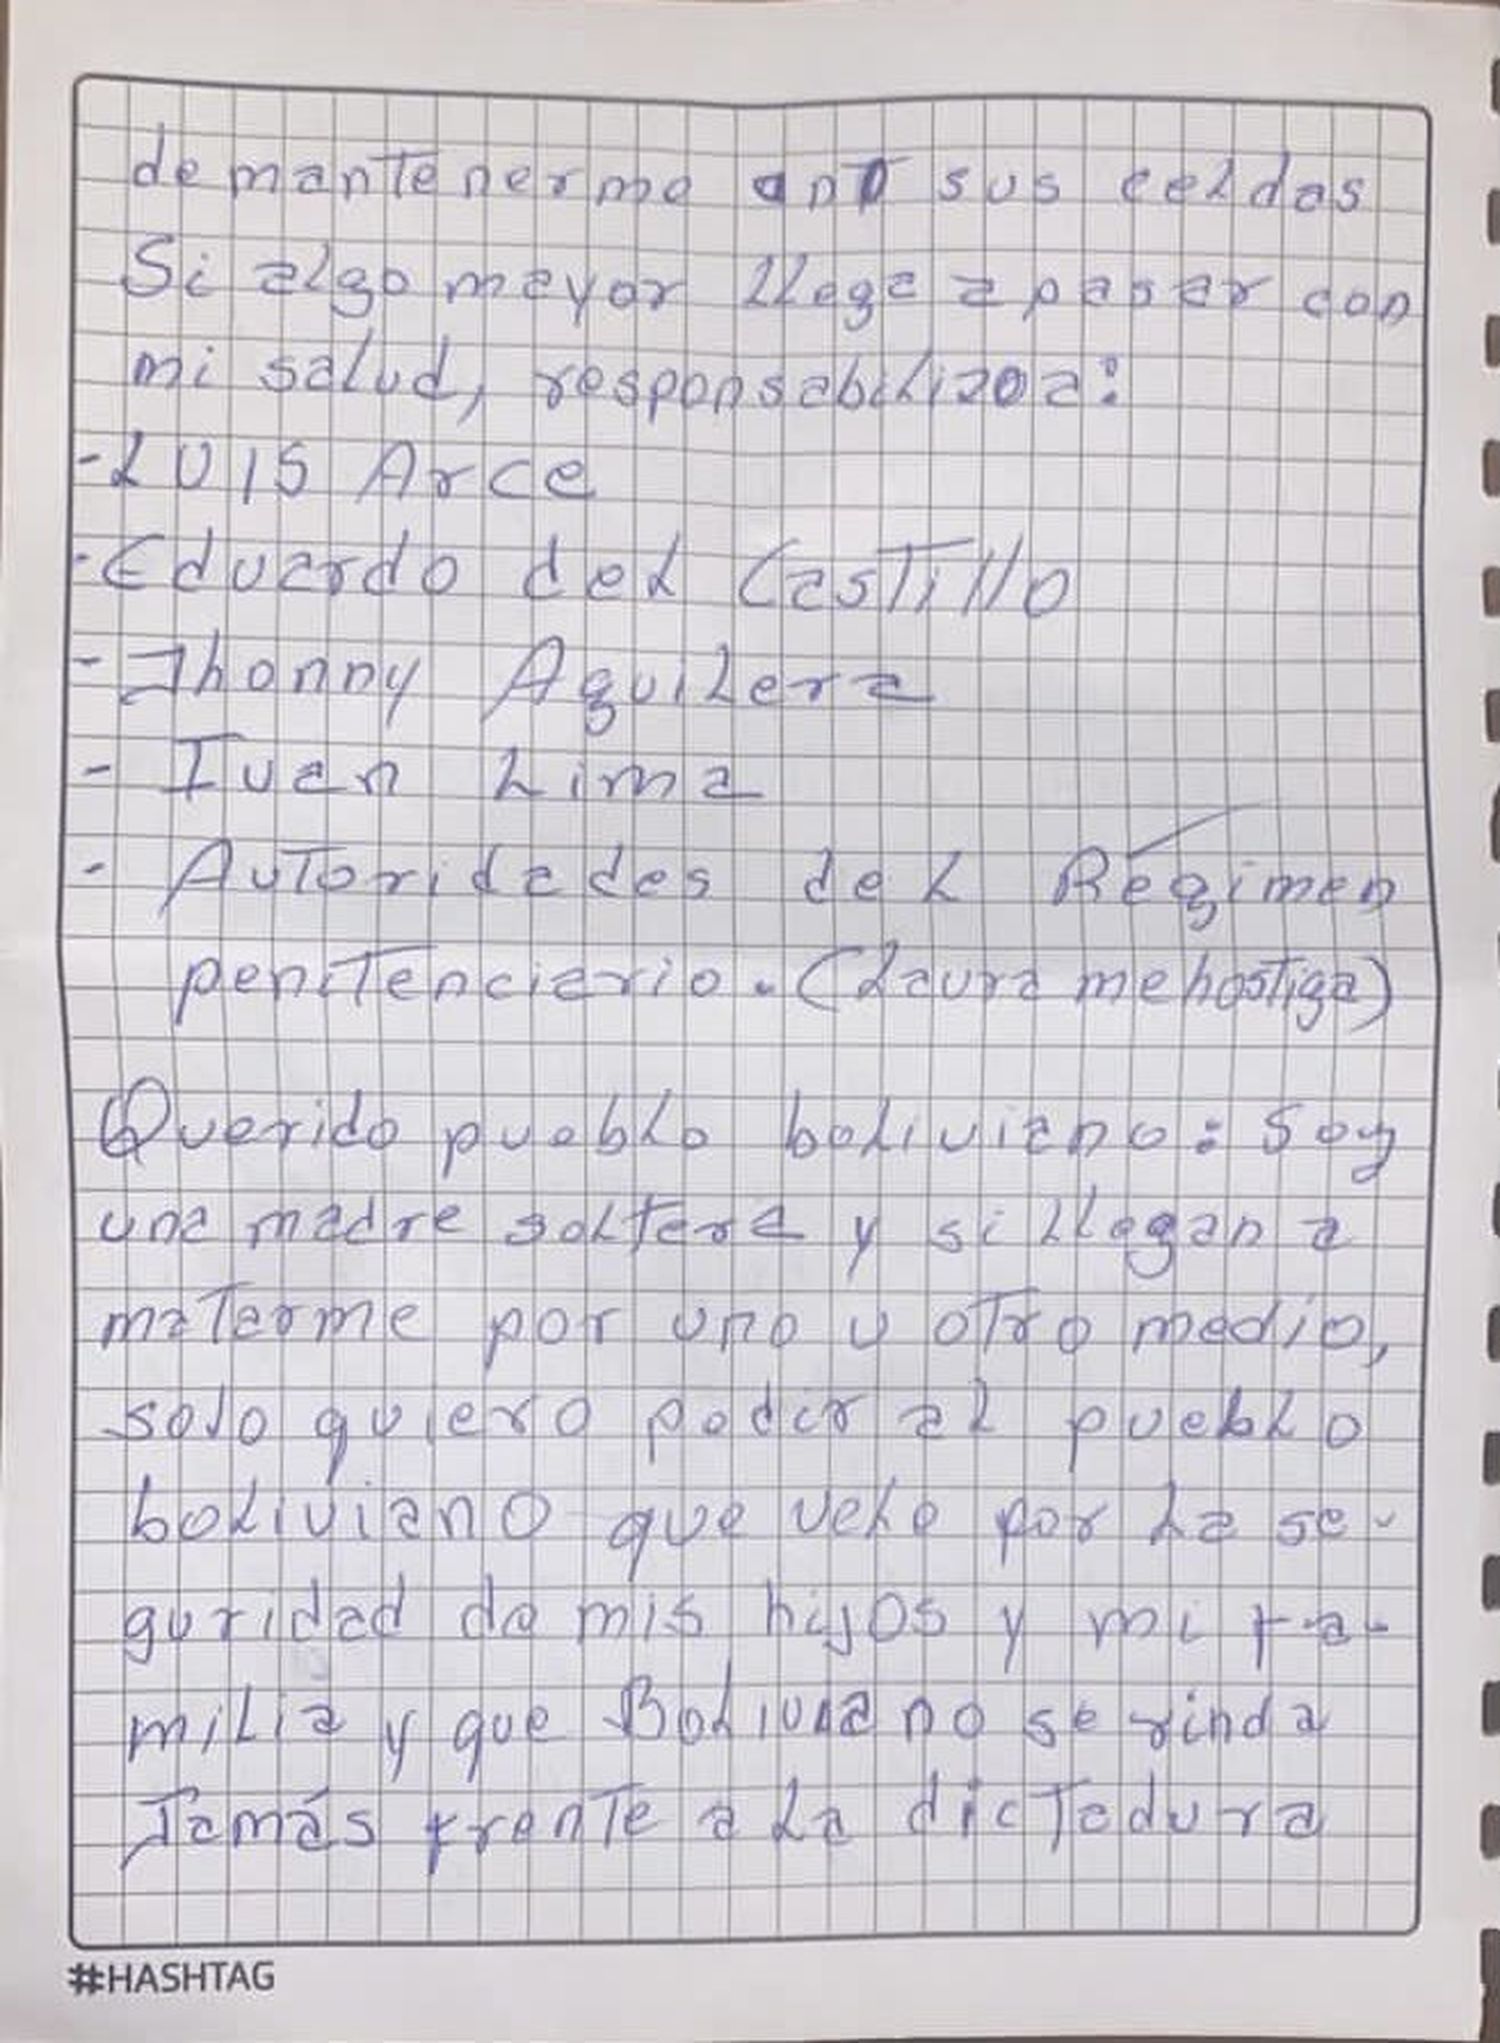 de mantenerme en sus celdas
Si algo mayor llega a pasar con
mi salud, responsabilizo a:
- LUIS Arce
- Eduardo del Castillo
- Jhonny Aguilera
- Ivan Lima
- Autoridades del Régimen
penitenciario. (Laura me hostiga)
Querido pueblo boliviano: Soy
una madre soltera y si llegan a
matarme por uno u otro medio,
solo quiero pedir al pueblo
boliviano que vele por la se-
guridad de mis hijos y mi fa-
milia y que Bolivia no se rinda
Jamás frente a la dictadura
#HASHTAG